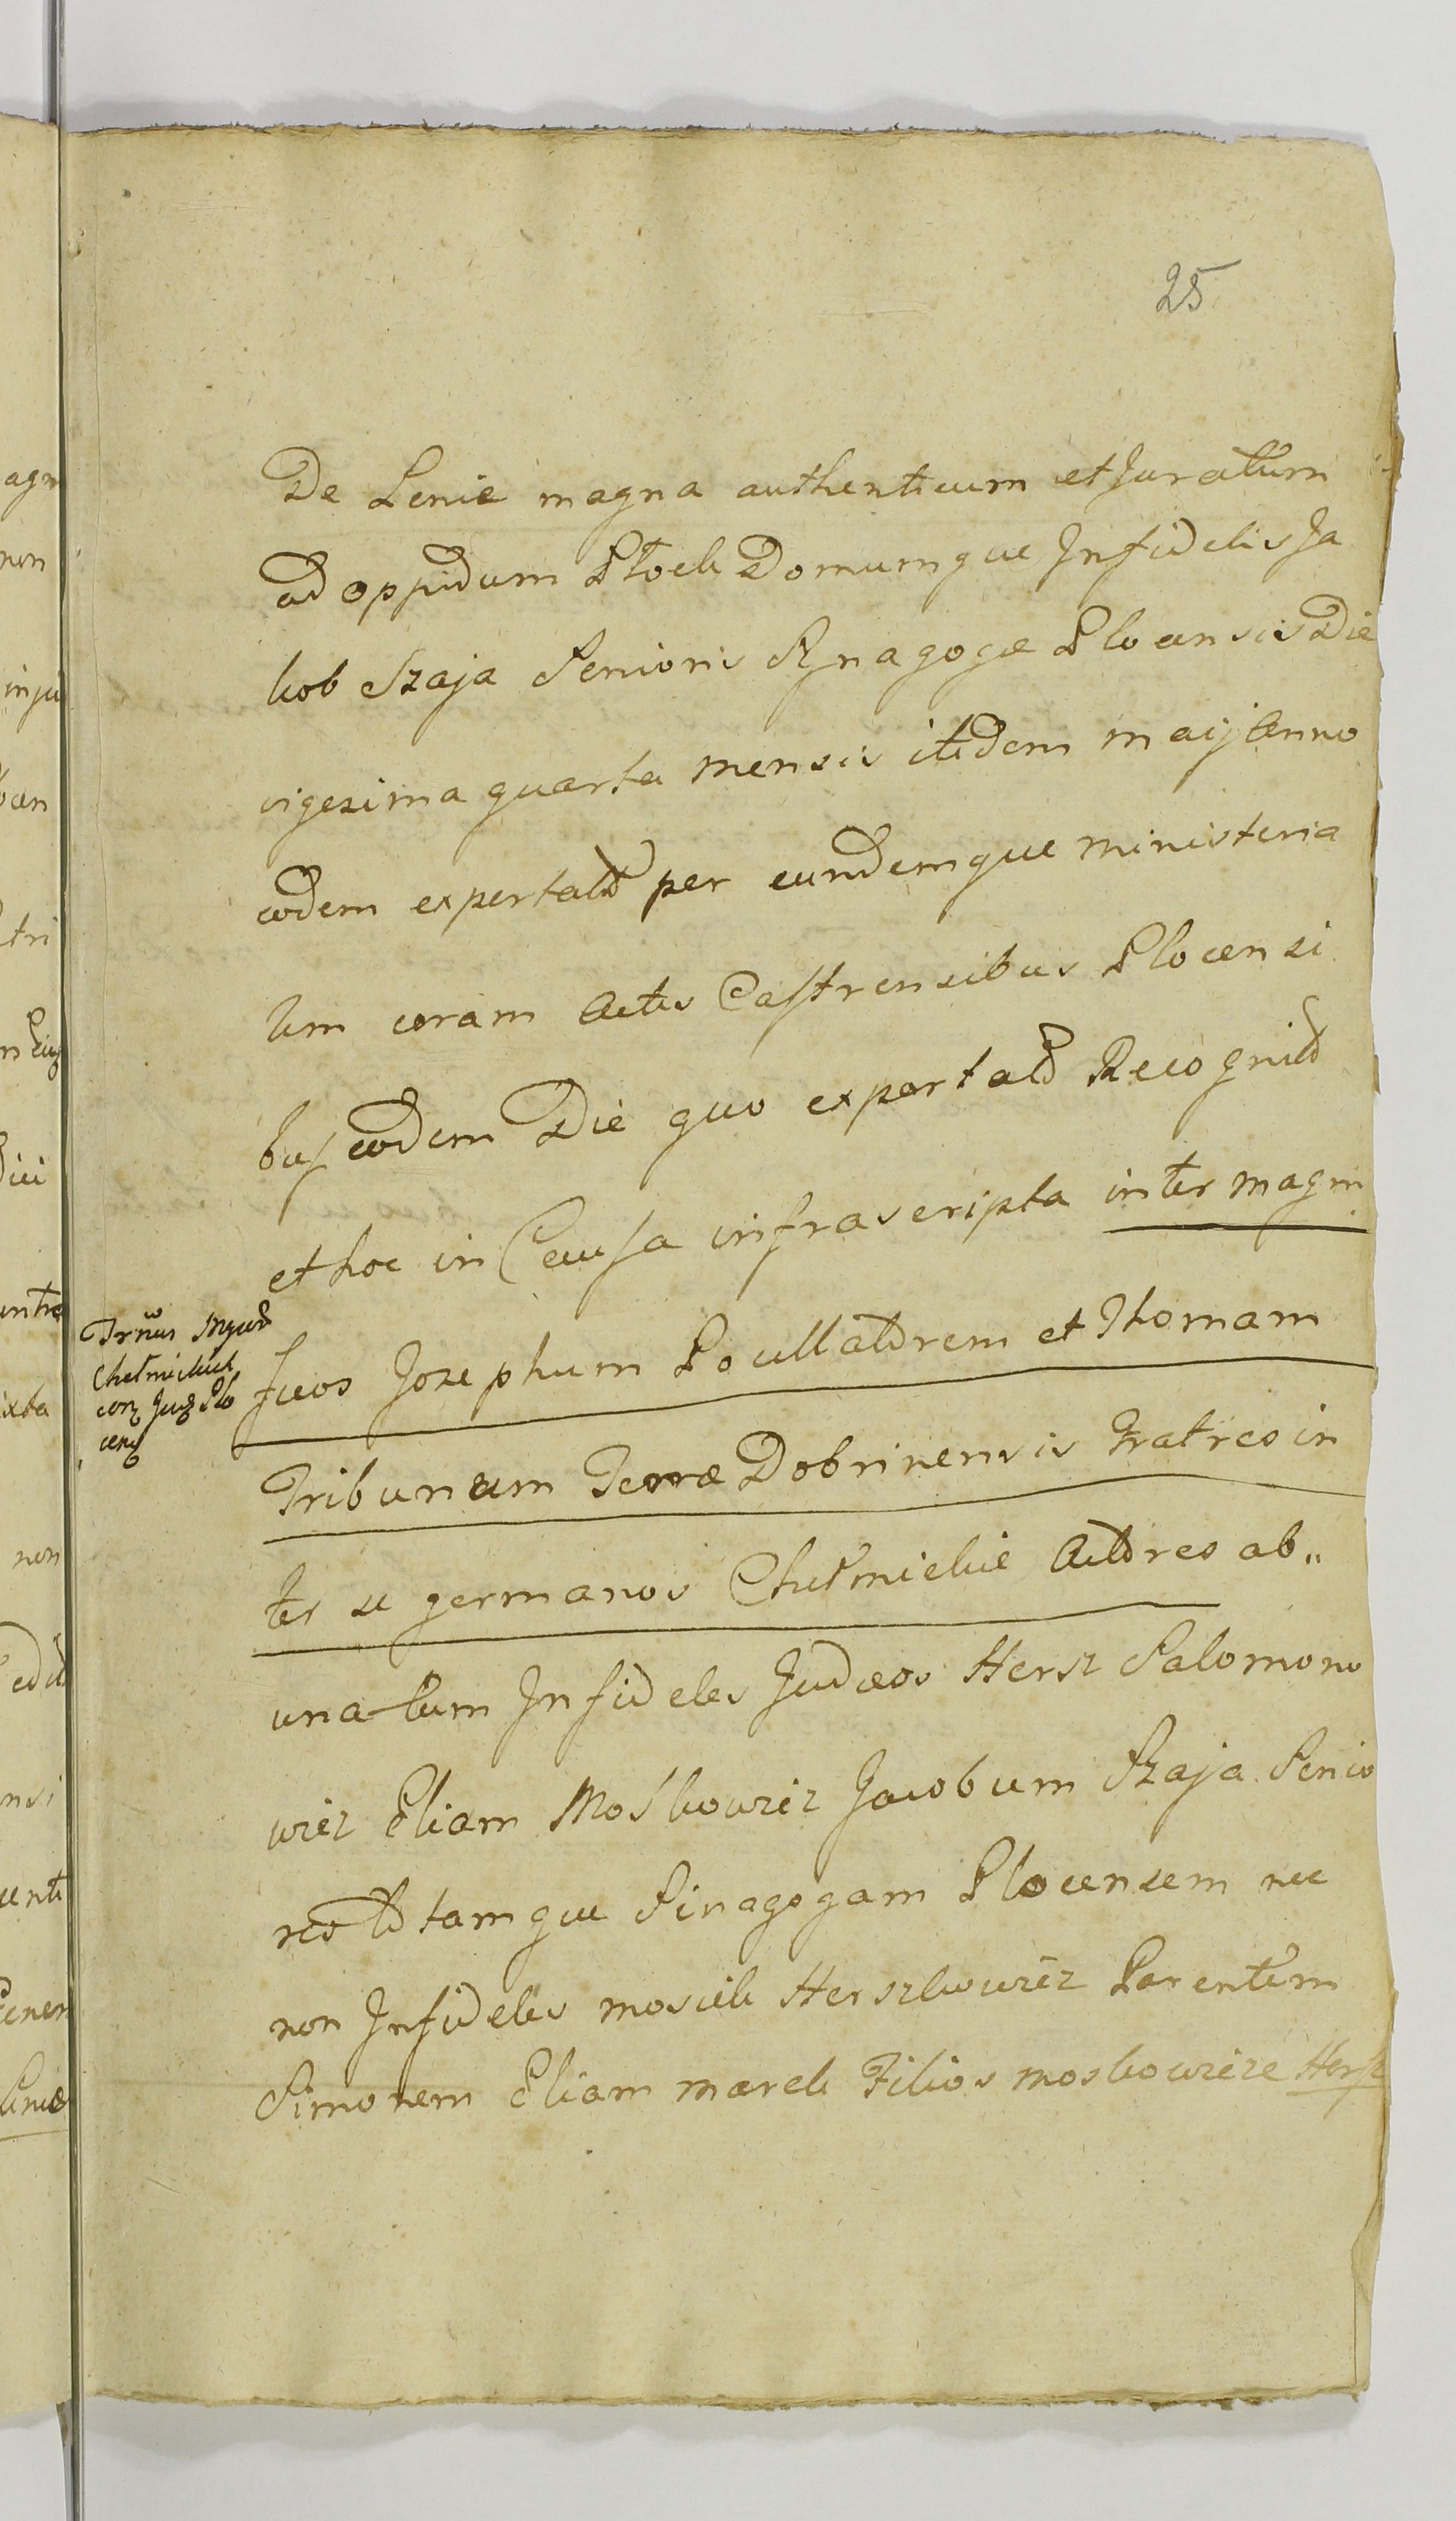 25
De Lenie magna authenticum et Juratum
ad oppidum Płock Domumque Infidelis Ja
kob Szaja Senioris Synagogæ Plocensis Die
vigesima quarta mensis itidem maij Anno
eodem exportatd per eundemque ministeria
lem coram Actis Castrensibus Plocensi
bus eodem Die quo exportatd Recognitd
et hoc in Causa infrascripta inter magni
ficos Josephum Pocillatorem et Thomam
Tribunum Terræ Dobrinensis Fratres in
ter se germanos Chełmickie Actores ab„
una tum Infideles Judæos Hersz Salomono
wicz Eliam Mośkowicz Jacobum Szaja Senio
res totamque Sinagogam Plocensem nec
non Infideles mosiek Herszkowicz Parentem
Simonem Eliam marek Filios moskowicze Hersz
Chełmickich